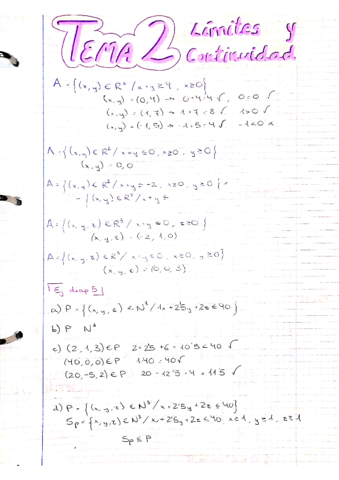 TEMA 2 Límites y Continuidad
A = {(x,y) ∈ R² / x+y ≥ 4, x≥0}
(x,y) = (0,4) → 0+4=4 ✓, 0=0 ✓
(x,y) = (1,7) → 1+7=8 ✓ 1>0 ✓
(x,y) = (-1,5) → -1+5=4 ✓ -1<0 x
A = {(x,y) ∈ R² / x+y ≤ 0, x≥0, y≥0}
(x,y) = 0,0
A = {(x,y) ∈ R² / x+y = -2, x≥0, y≥0} =
= {(x,y) ∈ R² / x+y ≤
A = {(x,y,z) ∈ R³ / x+y ≤ 0, z≥0}
(x,y,z) = (-2,1,0)
A = {(x,y,z) ∈ R³ / x+y ≤ 0, x≥0, y≥0}
(x,y,z) = (0,0,3)
Ej diap 5
a) P = {(x,y,z) ∈ N³ / 1x + 2'5y + 2z ≤ 40}
b) P N³
c) (2,1,3) ∈ P 2+2'5+6 = 10'5 < 40 ✓
(40,0,0) ∈ P 1·40 = 40 ✓
(20,-5,2) ∈ P 20 - 12'5 + 4 = 11'5 ✓
d) P = {(x,y,z) ∈ N³ / x + 2'5y + 2z ≤ 40}
Sp = {x,y,z) ∈ N³ / x + 2'5y + 2z ≤ 40 x≥1, y≥1, z≥1
Sp ≤ P